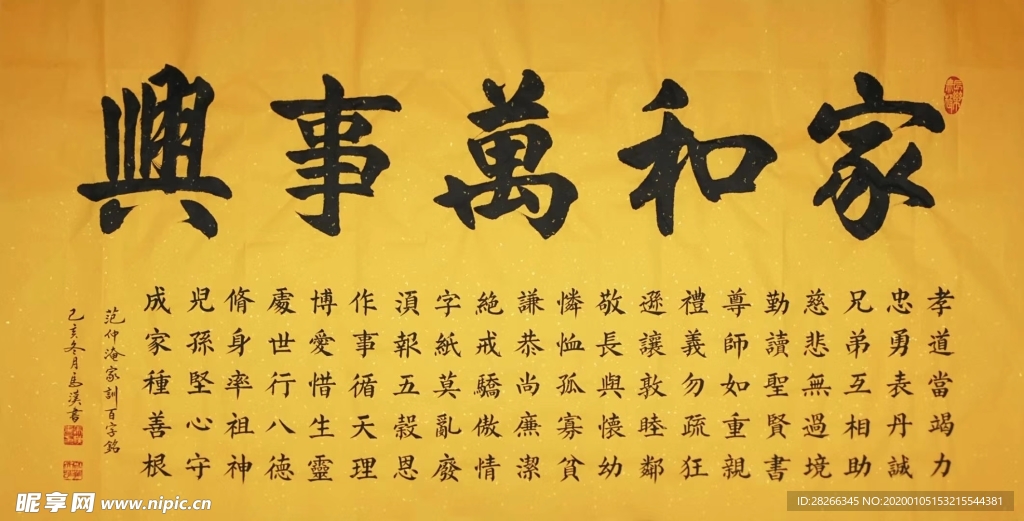 家和萬事興
孝道當竭力
忠勇表丹誠
兄弟互相助
慈悲無過境
勤讀聖賢書
尊師如重親
禮義勿疏狂
遜讓敦睦鄰
敬長與懷幼
憐恤孤寡貧
謙恭尚廉潔
絕戒驕傲情
字紙莫亂廢
須報五穀恩
作事循天理
博愛惜生靈
處世行八德
脩身率祖神
兒孫堅心守
成家種善根
范仲淹家訓百字銘
己亥冬月馬漢書
昵享网 www.nipic.cn
ID:28266345 NO:20200105153215544381